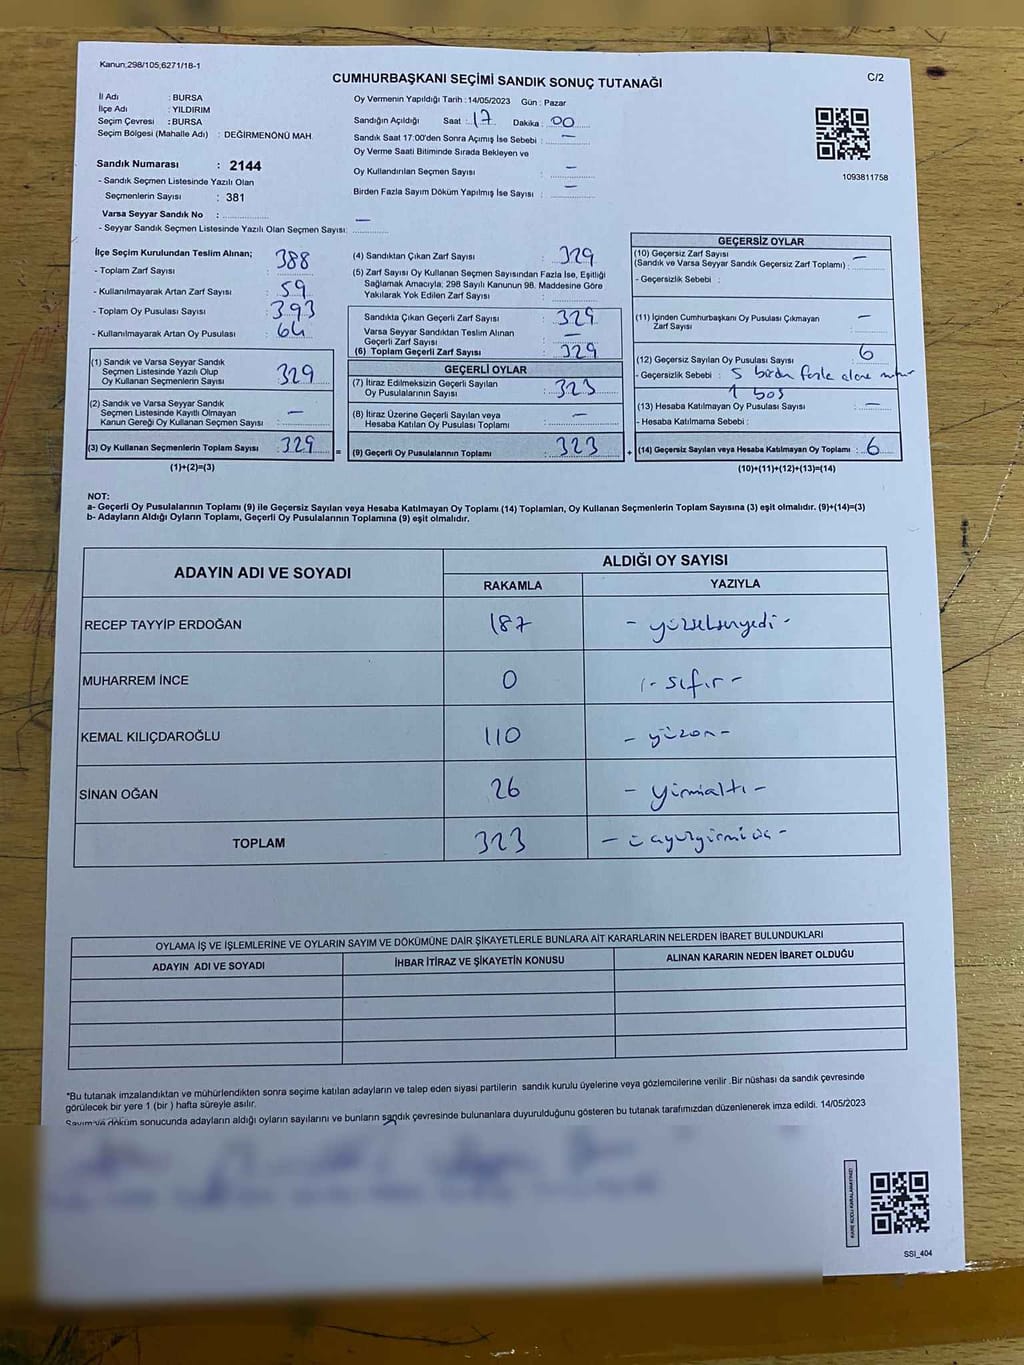 Kanun:298/105,6271/18-1
CUMHURBAŞKANI SEÇİMİ SANDIK SONUÇ TUTANAĞI
C/2
İl Adı : BURSA
İlçe Adı : YILDIRIM
Seçim Çevresi : BURSA
Seçim Bölgesi (Mahalle Adı) : DEĞİRMENÖNÜ MAH.
Sandık Numarası : 2144
- Sandık Seçmen Listesinde Yazılı Olan
Seçmenlerin Sayısı : 381
Varsa Seyyar Sandık No :
- Seyyar Sandık Seçmen Listesinde Yazılı Olan Seçmen Sayısı: —
Oy Vermenin Yapıldığı Tarih : 14/05/2023 Gün : Pazar
Sandığın Açıldığı Saat : 17 Dakika : 00
Sandık Saat 17:00'den Sonra Açımış İse Sebebi : —
Oy Verme Saati Bitiminde Sırada Bekleyen ve
Oy Kullandırılan Seçmen Sayısı : —
Birden Fazla Sayım Döküm Yapılmış İse Sayısı : —
1093811758
İlçe Seçim Kurulundan Teslim Alınan;
- Toplam Zarf Sayısı : 388
- Kullanılmayarak Artan Zarf Sayısı : 59
- Toplam Oy Pusulası Sayısı : 393
- Kullanılmayarak Artan Oy Pusulası : 64
(1) Sandık ve Varsa Seyyar Sandık
Seçmen Listesinde Yazılı Olup
Oy Kullanan Seçmenlerin Sayısı : 329
(2) Sandık ve Varsa Seyyar Sandık
Seçmen Listesinde Kayıtlı Olmayan
Kanun Gereği Oy Kullanan Seçmen Sayısı : —
(3) Oy Kullanan Seçmenlerin Toplam Sayısı : 329
(1)+(2)=(3)
(4) Sandıktan Çıkan Zarf Sayısı : 329
(5) Zarf Sayısı Oy Kullanan Seçmen Sayısından Fazla İse, Eşitliği
Sağlamak Amacıyla; 298 Sayılı Kanunun 98. Maddesine Göre
Yakılarak Yok Edilen Zarf Sayısı :
Sandıkta Çıkan Geçerli Zarf Sayısı : 329
Varsa Seyyar Sandıktan Teslim Alınan
Geçerli Zarf Sayısı : —
(6) Toplam Geçerli Zarf Sayısı : 329
GEÇERLİ OYLAR
(7) İtiraz Edilmeksizin Geçerli Sayılan
Oy Pusulalarının Sayısı : 323
(8) İtiraz Üzerine Geçerli Sayılan veya
Hesaba Katılan Oy Pusulası Toplamı : —
= (9) Geçerli Oy Pusulalarının Toplamı : 323
GEÇERSİZ OYLAR
(10) Geçersiz Zarf Sayısı
(Sandık ve Varsa Seyyar Sandık Geçersiz Zarf Toplamı) : —
- Geçersizlik Sebebi :
(11) İçinden Cumhurbaşkanı Oy Pusulası Çıkmayan
Zarf Sayısı : —
(12) Geçersiz Sayılan Oy Pusulası Sayısı : 6
- Geçersizlik Sebebi : 5 birden fazla alana mühür
1 boş
(13) Hesaba Katılmayan Oy Pusulası Sayısı : —
- Hesaba Katılmama Sebebi :
+ (14) Geçersiz Sayılan veya Hesaba Katılmayan Oy Toplamı : 6
(10)+(11)+(12)+(13)=(14)
NOT:
a- Geçerli Oy Pusulalarının Toplamı (9) ile Geçersiz Sayılan veya Hesaba Katılmayan Oy Toplamı (14) Toplamları, Oy Kullanan Seçmenlerin Toplam Sayısına (3) eşit olmalıdır. (9)+(14)=(3)
b- Adayların Aldığı Oyların Toplamı, Geçerli Oy Pusulalarının Toplamına (9) eşit olmalıdır.
ADAYIN ADI VE SOYADI
ALDIĞI OY SAYISI
RAKAMLA YAZIYLA
RECEP TAYYİP ERDOĞAN 187 - yüzseksenyedi -
MUHARREM İNCE 0 - sıfır -
KEMAL KILIÇDAROĞLU 110 - yüzon -
SİNAN OĞAN 26 - yirmialtı -
TOPLAM 323 - üçyüzyirmiüç -
OYLAMA İŞ VE İŞLEMLERİNE VE OYLARIN SAYIM VE DÖKÜMÜNE DAİR ŞİKAYETLERLE BUNLARA AİT KARARLARIN NELERDEN İBARET BULUNDUKLARI
ADAYIN ADI VE SOYADI İHBAR İTİRAZ VE ŞİKAYETİN KONUSU ALINAN KARARIN NEDEN İBARET OLDUĞU
*Bu tutanak imzalandıktan ve mühürlendikten sonra seçime katılan adayların ve talep eden siyasi partilerin sandık kurulu üyelerine veya gözlemcilerine verilir .Bir nüshası da sandık çevresinde
görülecek bir yere 1 (bir ) hafta süreyle asılır.
Sayım ve döküm sonucunda adayların aldığı oyların sayılarını ve bunların sandık çevresinde bulunanlara duyurulduğunu gösteren bu tutanak tarafımızdan düzenlenerek imza edildi. 14/05/2023
KARE KODU KARALAMAYINIZ!
SSI_404